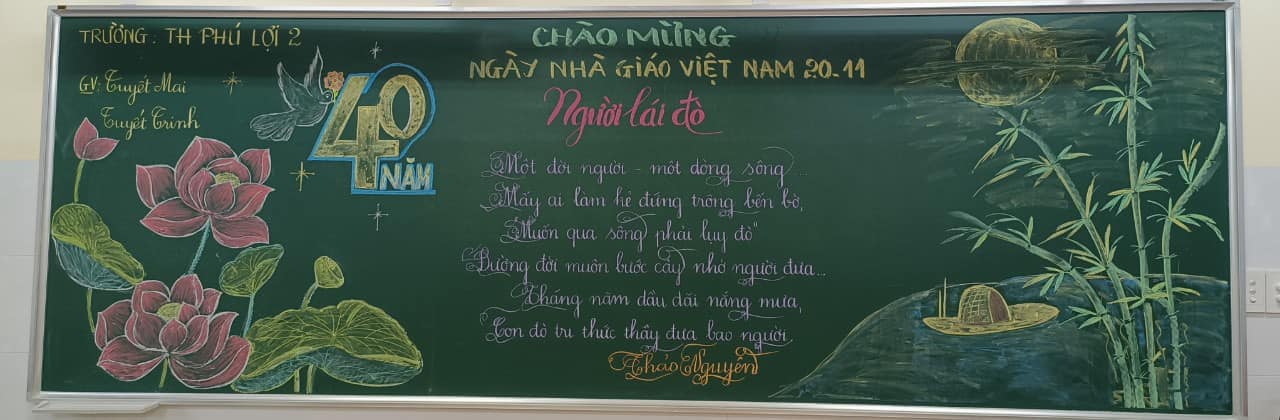 TRƯỜNG: TH PHÚ LỢI 2
GV: Tuyết Mai
Tuyết Trinh
40
NĂM
CHÀO MỪNG
NGÀY NHÀ GIÁO VIỆT NAM 20-11
Người lái đò
Một đời người - một dòng sông...
Mấy ai làm kẻ đứng trông bến bờ,
"Muốn qua sông phải lụy đò"
Đường đời muôn bước cậy nhờ người đưa...
Tháng năm dầu dãi nắng mưa,
Con đò tri thức thầy đưa bao người.
Thảo Nguyên